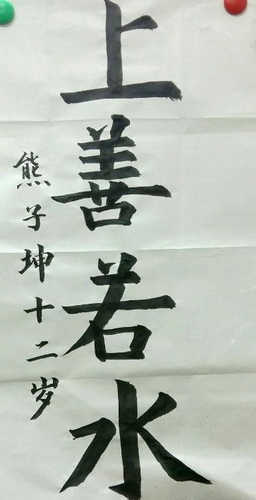 上善若水
熊子坤十二岁